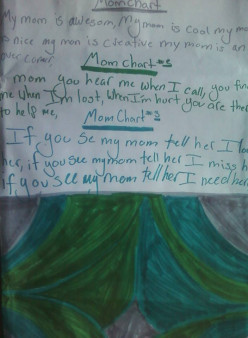 Mom Chart
My mom is awesom, My mom is cool my mo
s nice my mom is creative my mom is an
over comer,
Mom Chart #2
mom you hear me when I call, you fin
me when I'm lost, when I'm hurt you are ther
to help me,
Mom Chart #3
If you se my mom tell her I lo
her, if you see my mom tell her I miss h
If you see my mom tell her I need her